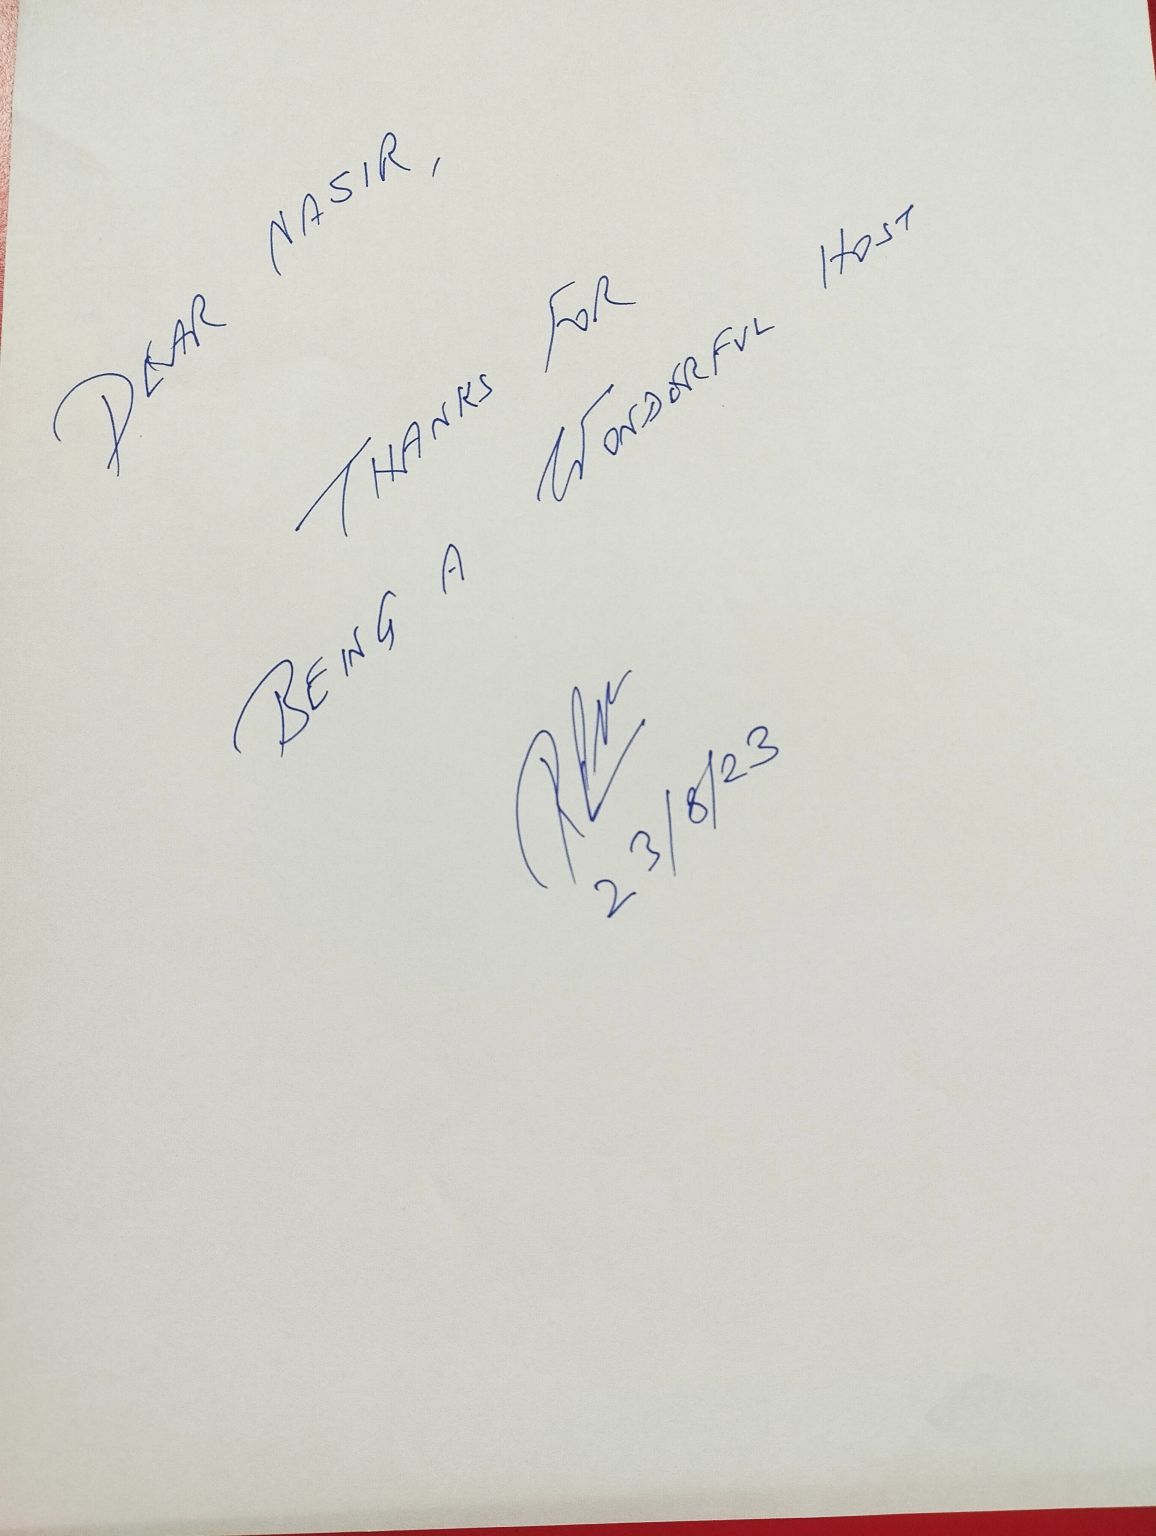 DEAR NASIR,
THANKS FOR
BEING A WONDERFUL HOST
23/8/23